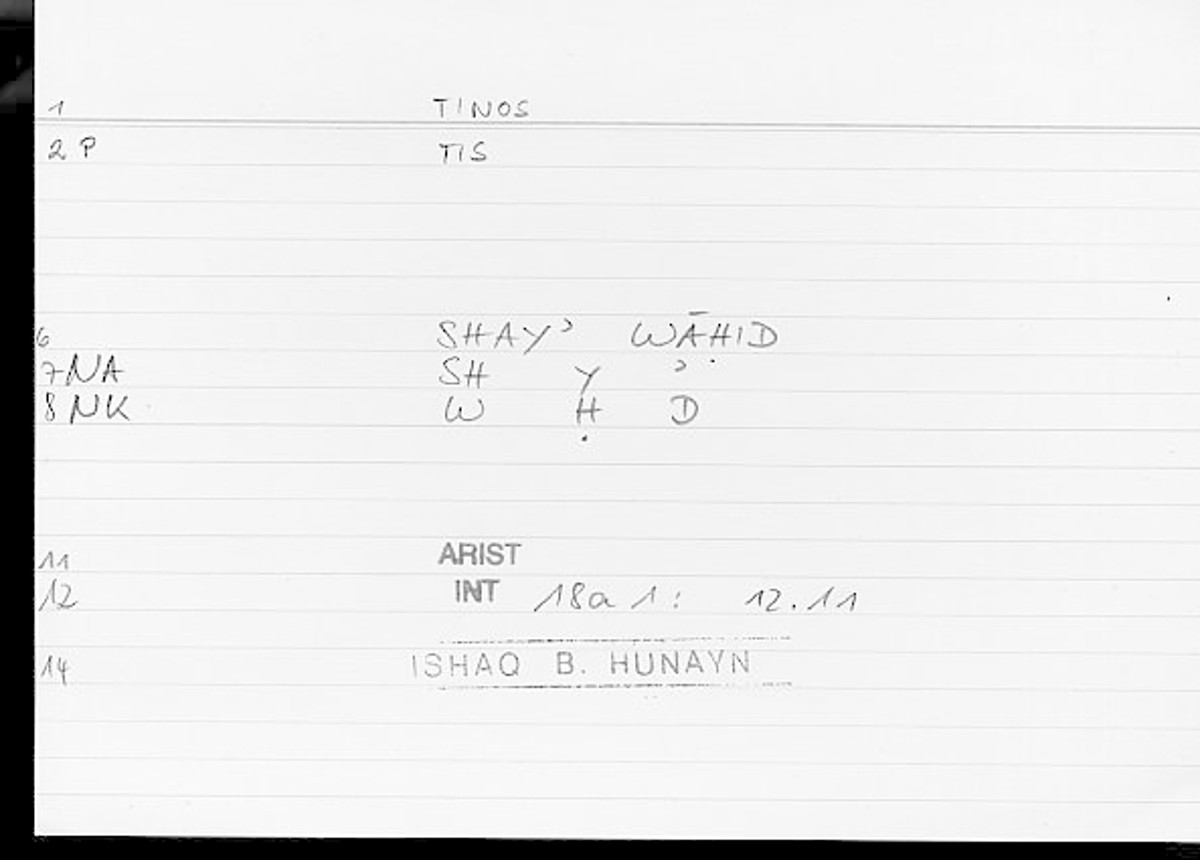 1 TINOS
2 P TIS
6 SHAYʾ WĀḤID
7 NA SH Y ʾ
8 NK W Ḥ D
11 ARIST
12 INT 18a 1: 12.11
14 ISHAQ B. HUNAYN